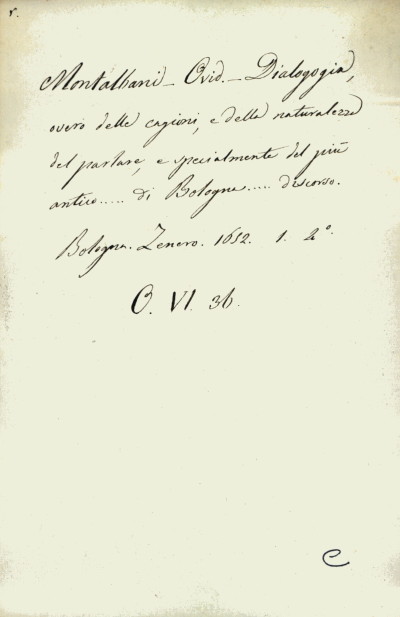 r.
Montalbani_ Ovid._ Dialogogia,
overo delle cagioni, e della naturalezza
del parlare, e specialmente del più
antico..... di Bologna..... discorso.
Bologna. Zenero. 1652. 1. 4°.
O. VI. 36.
C